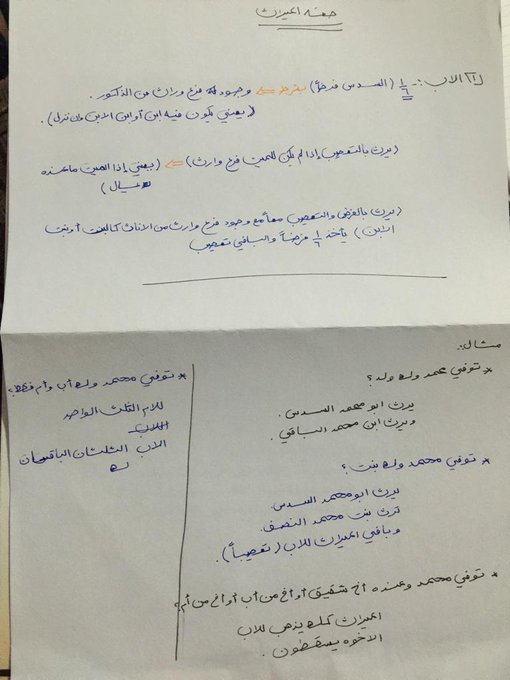 حصة الميراث
(١) الاب :- ١/٦ (السدس فرضاً) بشرط ⇐ وجود فرع وارث من الذكور .
( يعني يكون فيه ابن أو ابن الابن وإن نزل ) .
( يرث بالتعصيب إذا لم يكن للميت فرع وارث ) ⇐ ( يعني إذا الميت ما عنده
عيال )
( يرث بالفرض والتعصيب معاً مع وجود فرع وارث من الاناث كالبنت أو بنت
الابن ) يأخذ ١/٦ فرضاً والباقي تعصيب
مثال :
* توفي محمد وله ولد ؟
يرث ابو محمد السدس .
ويرث ابن محمد الباقي .
* توفي محمد وله بنت ؟
يرث ابو محمد السدس
ترث بنت محمد النصف
وباقي الميراث للاب ( تعصيباً ) .
* توفي محمد وعنده أخ شقيق أو أخ من أب أو أخ من أم ؟
الميراث كله يذهب للاب
الاخوه يسقطون .
* توفي محمد وله أب وأم فقط ؟
للام الثلث الواحد
للاب
الاب الثلثان الباقيان
له